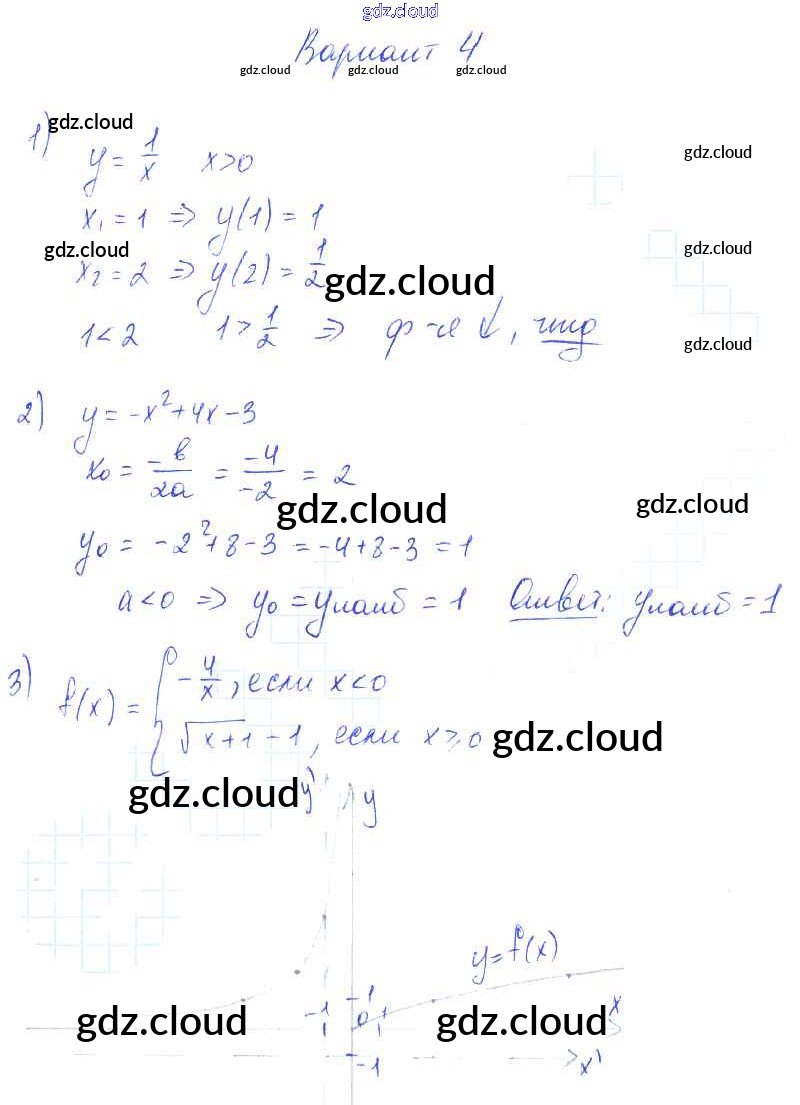 gdz.cloud
Вариант 4
gdz.cloud gdz.cloud gdz.cloud
1) gdz.cloud
y = 1/x x>0
gdz.cloud
x₁ = 1 => y(1) = 1
gdz.cloud gdz.cloud
x₂ = 2 => y(2) = 1/2
gdz.cloud
1<2 1>1/2 => ф-я ↓, чтд
gdz.cloud
2) y = -x²+4x-3
x₀ = -b/2a = -4/-2 = 2
gdz.cloud gdz.cloud
y₀ = -2²+8-3 = -4+8-3 = 1
a<0 => y₀ = yнаиб = 1 Ответ: yнаиб = 1
3) f(x) = { -4/x, если x<0
√x+1 - 1, если x≥0
gdz.cloud
gdz.cloud
y' y
y=f(x)
-1 1 0 1 x
gdz.cloud gdz.cloud
-1 x'